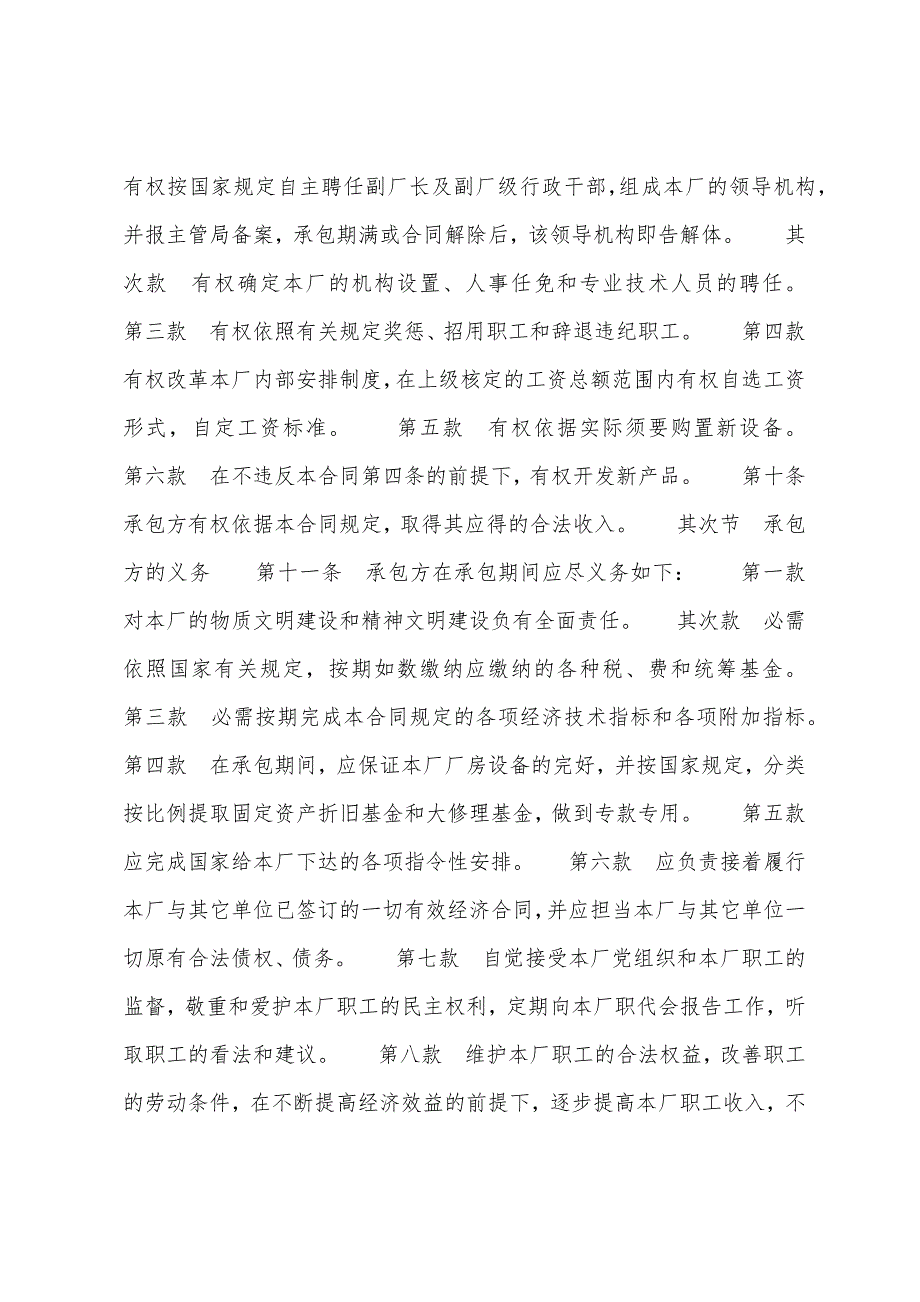 有权按国家规定自主聘任副厂长及副厂级行政干部，组成本厂的领导机构，
并报主管局备案，承包期满或合同解除后，该领导机构即告解体。　　其
次款　有权确定本厂的机构设置、人事任免和专业技术人员的聘任。
第三款　有权依照有关规定奖惩、招用职工和辞退违纪职工。　　第四款
有权改革本厂内部安排制度，在上级核定的工资总额范围内有权自选工资
形式，自定工资标准。　　第五款　有权依据实际须要购置新设备。
第六款　在不违反本合同第四条的前提下，有权开发新产品。　　第十条
承包方有权依据本合同规定，取得其应得的合法收入。　　其次节　承包
方的义务　　第十一条　承包方在承包期间应尽义务如下：　　第一款
对本厂的物质文明建设和精神文明建设负有全面责任。　　其次款　必需
依照国家有关规定，按期如数缴纳应缴纳的各种税、费和统筹基金。
第三款　必需按期完成本合同规定的各项经济技术指标和各项附加指标。
第四款　在承包期间，应保证本厂厂房设备的完好，并按国家规定，分类
按比例提取固定资产折旧基金和大修理基金，做到专款专用。　　第五款
应完成国家给本厂下达的各项指令性安排。　　第六款　应负责接着履行
本厂与其它单位已签订的一切有效经济合同，并应担当本厂与其它单位一
切原有合法债权、债务。　　第七款　自觉接受本厂党组织和本厂职工的
监督，敬重和爱护本厂职工的民主权利，定期向本厂职代会报告工作，听
取职工的看法和建议。　　第八款　维护本厂职工的合法权益，改善职工
的劳动条件，在不断提高经济效益的前提下，逐步提高本厂职工收入，不